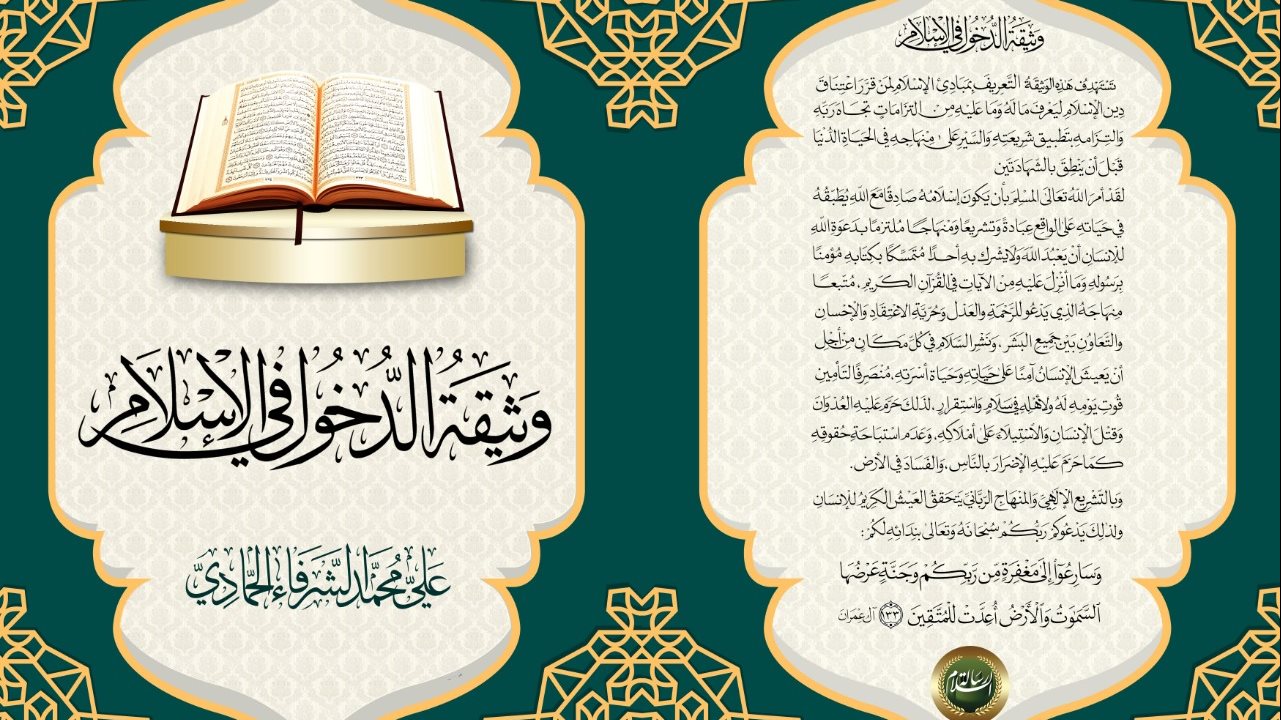 وَثِيقَةُ الدُّخُولِ فِي الإِسْلَامِ
عَلِيّ مُحَمَّد الشَّرفَاء الحَمَّادِيّ
وَثِيقَةُ الدُّخُولِ فِي الإِسْلَامِ
تَسْتَهْدِفُ هَذِهِ الوَثِيقَةُ التَّعرِيفَ بِمَبَادِئِ الإِسْلَامِ لِمَنْ قَرَّرَ اعْتِنَاقَ
دِينِ الإِسْلَامِ لِيَعْرِفَ مَا لَهُ وَمَا عَلَيْهِ مِنِ التِزَامَاتٍ تِجَاهَ رَبِّهِ
وَالتِزَامِهِ بِتَطبِيقِ شَرِيعَتِهِ وَالسَّيرِ عَلَى مِنهَاجِهِ فِي الحَيَاةِ الدُّنيَا
قَبلَ أَن يَنطِقَ بِالشَّهَادَتَينِ
لَقَد أَمَرَ اللهُ تَعَالَى المُسْلِمَ بِأَن يَكُونَ إِسْلَامُهُ صَادِقًا مَعَ اللهِ يُطَبِّقُهُ
فِي حَيَاتِهِ عَلَى الوَاقِعِ عِبَادَةً وَتَشْرِيعًا وَمِنْهَاجًا مُلتَزِمًا بِدَعوَةِ اللهِ
لِلإِنسَانِ أَن يَعْبُدَ اللهَ وَلَا يُشرِكَ بِهِ أَحَدًا مُتَمَسِّكًا بِكِتَابِهِ مُؤمِنًا
بِرَسُولِهِ وَمَا أُنْزِلَ عَلَيْهِ مِنَ الآيَاتِ فِي القُرآنِ الكَرِيمِ، مُتَّبِعًا
مِنهَاجَهُ الَّذِي يَدْعُو لِلرَّحْمَةِ وَالعَدْلِ وَحُرِّيَّةِ الاعْتِقَادِ وَالإِحْسَانِ
وَالتَّعَاوُنِ بَيْنَ جَمِيعِ البَشَرِ، وَنَشْرِ السَّلَامِ فِي كُلِّ مَكَانٍ مِن أَجْلِ
أَن يَعِيشَ الإِنسَانُ آمِنًا عَلَى حَيَاتِهِ وَحَيَاةِ أُسْرَتِهِ، مُنصَرِفًا لِتَأمِينِ
قُوتِ يَومِهِ لَهُ وَلِأَهْلِهِ فِي سَلَامٍ وَاستِقرَارٍ، لِذَلِكَ حَرَّمَ عَلَيهِ العُدوَانَ
وَقَتْلَ الإِنْسَانِ وَالاسْتِيلَاءَ عَلَى أَمْلَاكِهِ، وَعَدَمَ اسْتِبَاحَةِ حُقُوقِهِ
كَمَا حَرَّمَ عَلَيهِ الإِضرَارَ بِالنَّاسِ، وَالفَسَادَ فِي الأَرْضِ.
وَبِالتَّشرِيعِ الإِلَهِيِّ وَالمِنهَاجِ الرَّبَّانِيِّ يَتَحَقَّقُ العَيشُ الكَرِيمُ لِلإِنسَانِ
وَلِذَلِكَ يَدْعُوكُمْ رَبُّكُمْ سُبْحَانَهُ وَتَعَالَى بِنِدَائِهِ لَكُمْ:
وَسَارِعُوٓا۟ إِلَىٰ مَغْفِرَةٍ مِّن رَّبِّكُمْ وَجَنَّةٍ عَرْضُهَا
ٱلسَّمَٰوَٰتُ وَٱلْأَرْضُ أُعِدَّتْ لِلْمُتَّقِينَ ﴿١٣٣﴾ آل عِمْرَان
رسالة السلام